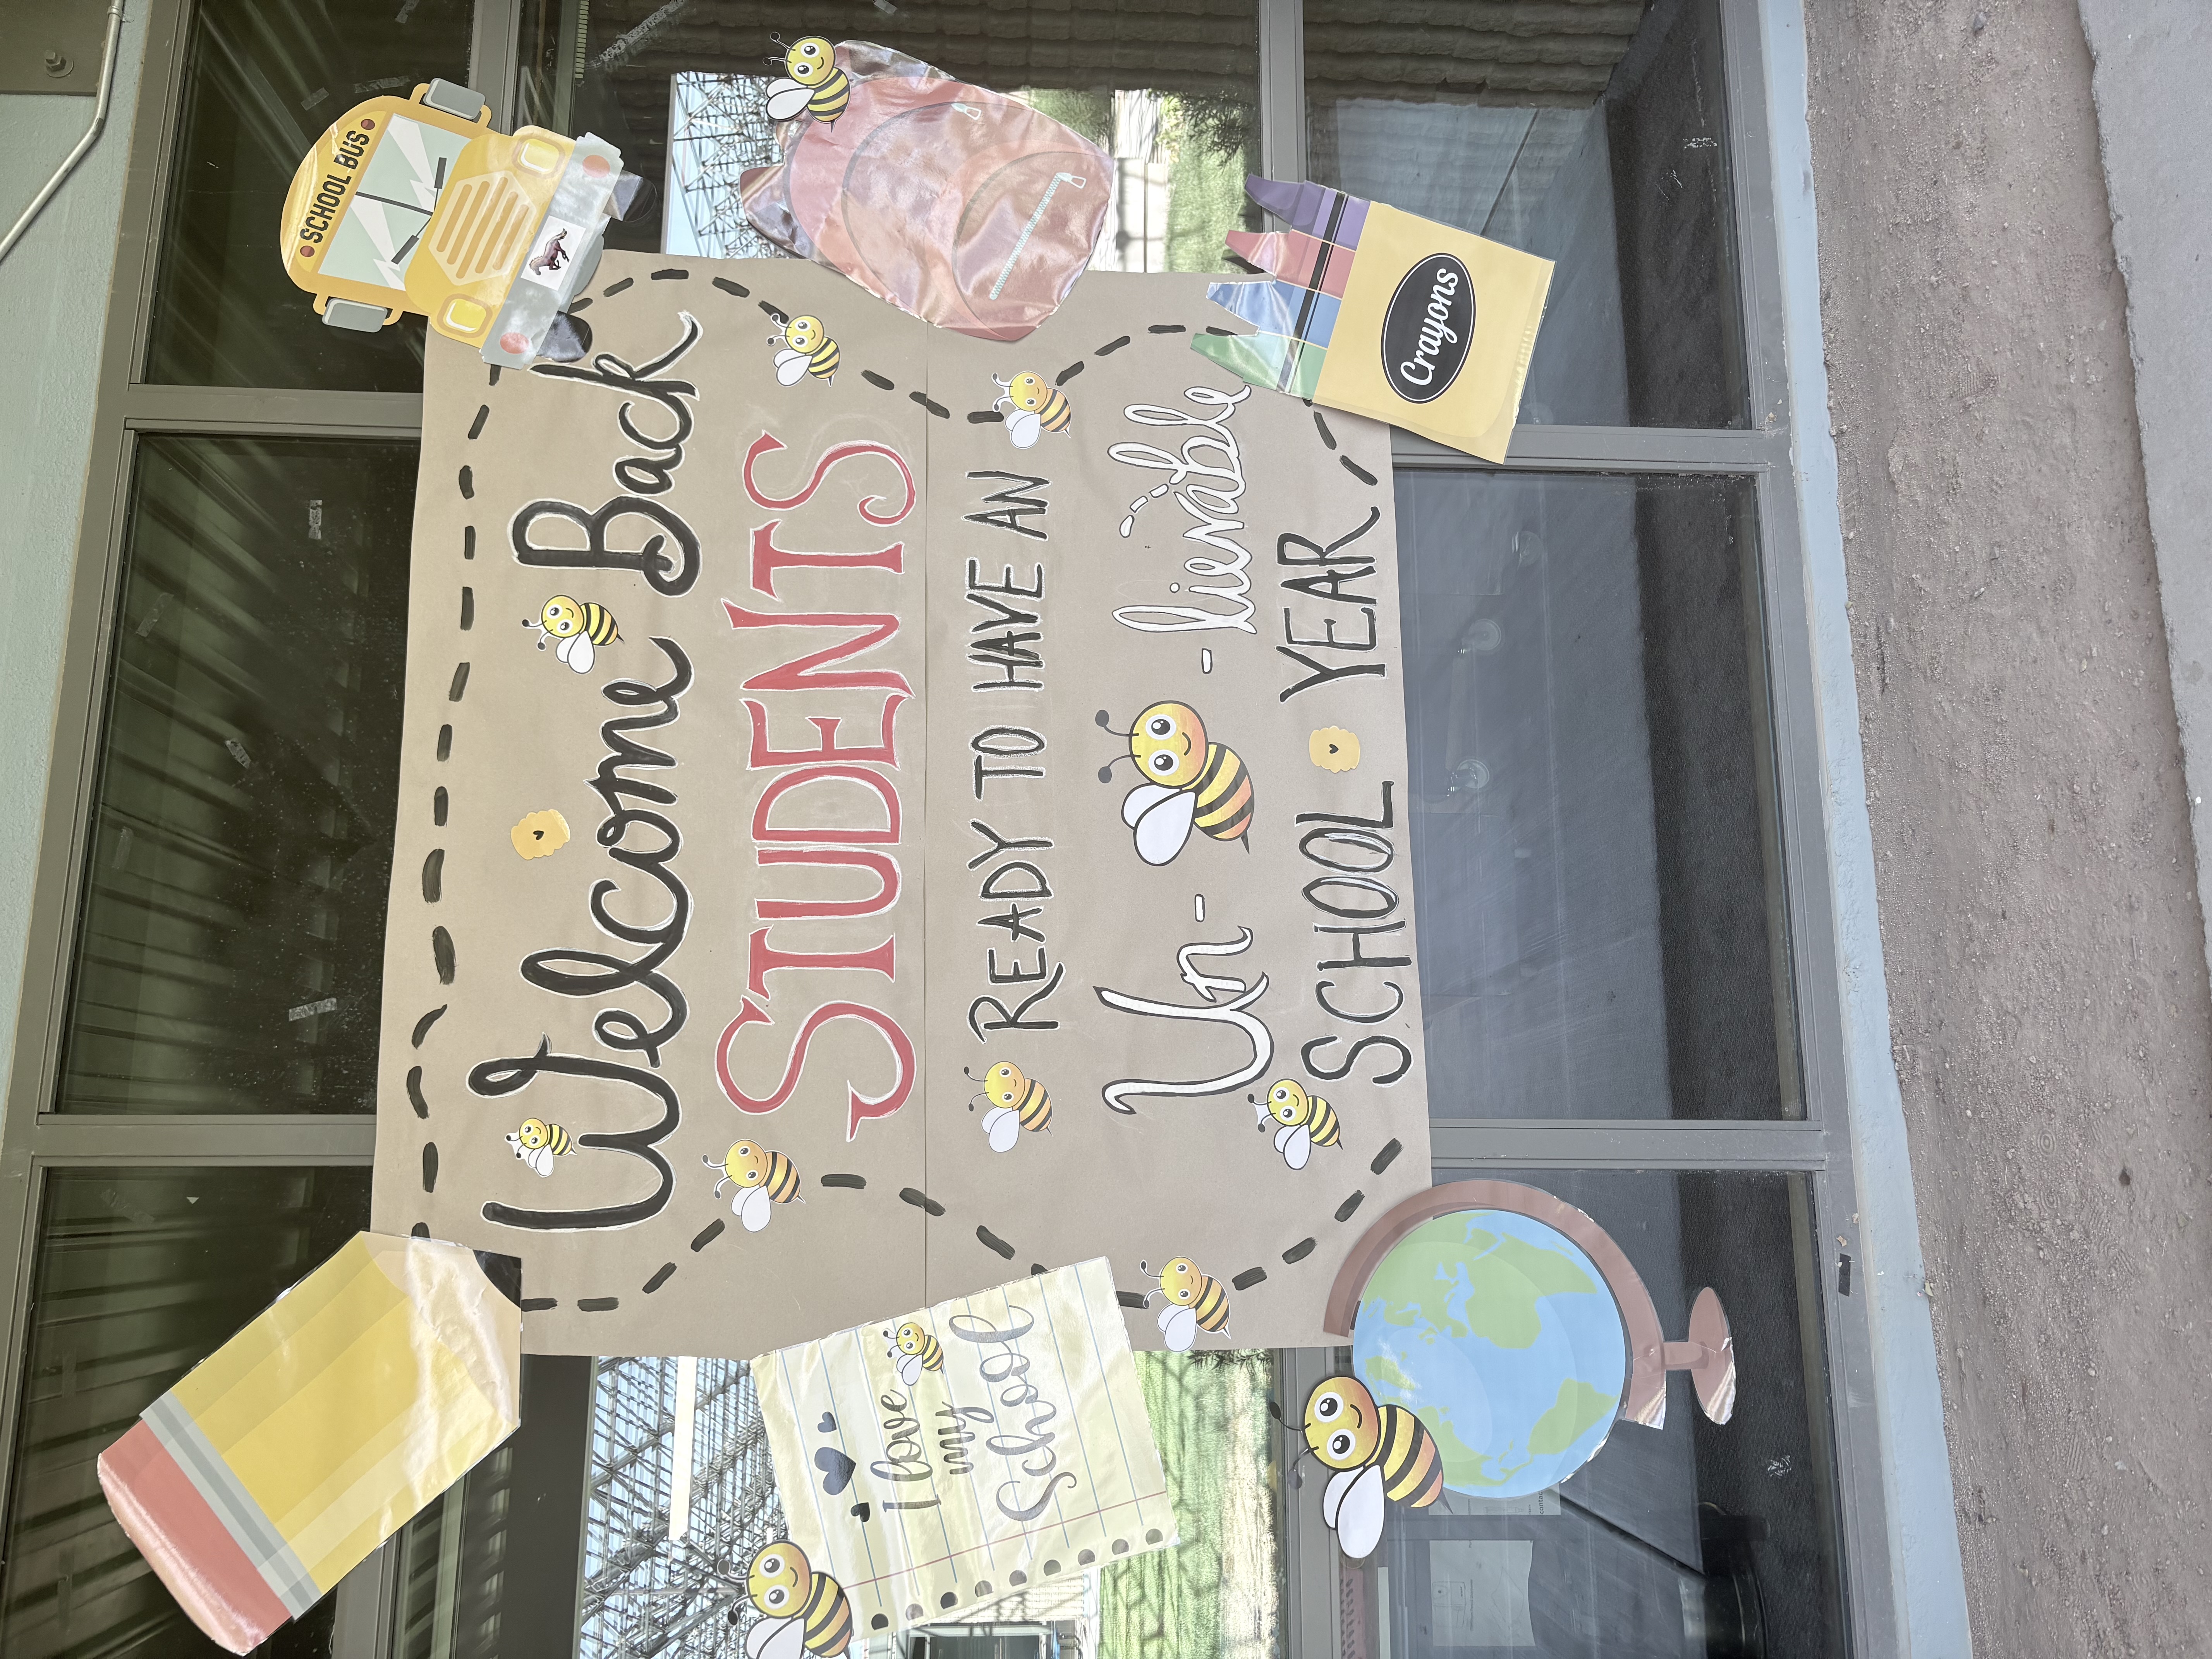 SCHOOL BUS
Welcome Back
STUDENTS
READY TO HAVE AN
Un- -lievable
SCHOOL YEAR
I love
my
School
Crayons